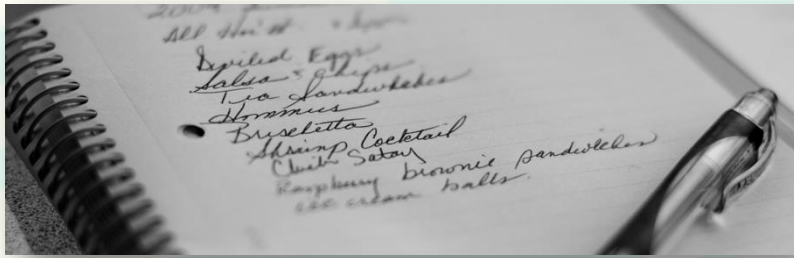 2009
All
Deviled Eggs
Salsa & Chips
Tea Sandwiches
Hommus
Bruschetta
Shrimp Cocktail
Satay
Raspberry brownie sandwiches
ice cream balls.